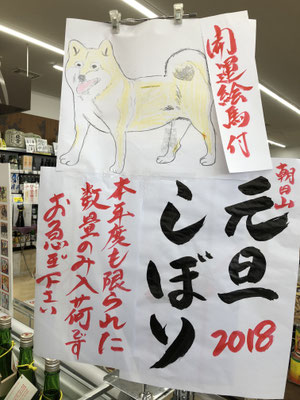 開運絵馬付
朝日山
元旦
しぼり
2018
本年度も限られた
数量のみ入荷です
お急ぎ下さい